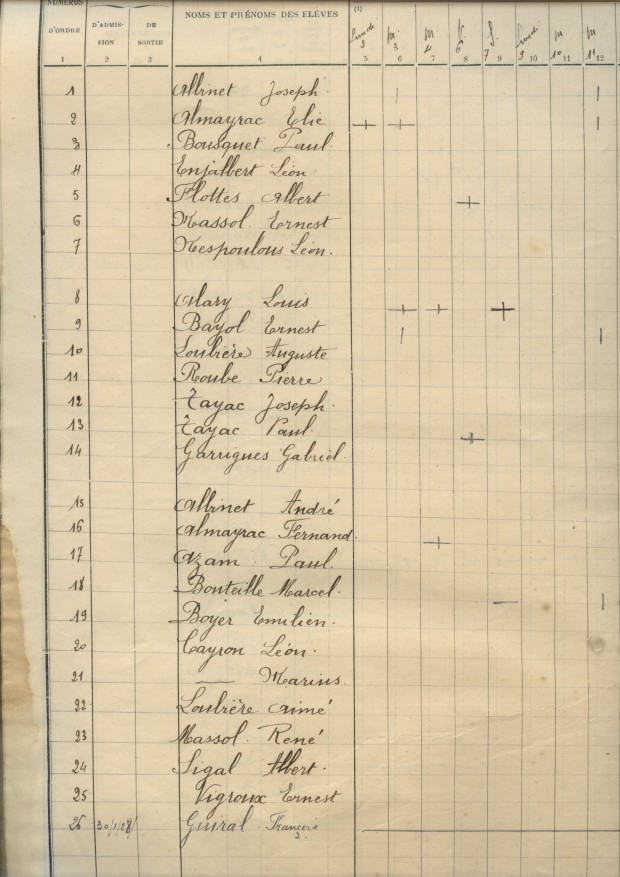 NUMÉROS
NOMS ET PRÉNOMS DES ÉLÈVES
(1)
D'ORDRE D'ADMISSION DE SORTIE
Lundi 2 m. 3 m 4 V. 6 S. 7 Lundi 9 m 10 m 11
1 2 3 4 5 6 7 8 9 10 11 12
1 Albinet Joseph
2 Almayrac Elie
3 Bousquet Paul
4 Enjalbert Léon
5 Flottes Albert
6 Massol Ernest
7 Nespoulous Léon.
8 Alary Louis
9 Bayol Ernest
10 Loubière Auguste
11 Roube Pierre
12 Tayac Joseph.
13 Tayac Paul
14 Garrigues Gabriel.
15 Albinet André
16 Almayrac Fernand.
17 Azam Paul
18 Bouteille Marcel.
19 Boyer Emilien.
20 Cayron Léon.
21 — Marius.
22 Loubière Aimé
23 Massol René
24 Sigal Albert.
25 Vigroux Ernest
26 30/1/28/ Guiral François